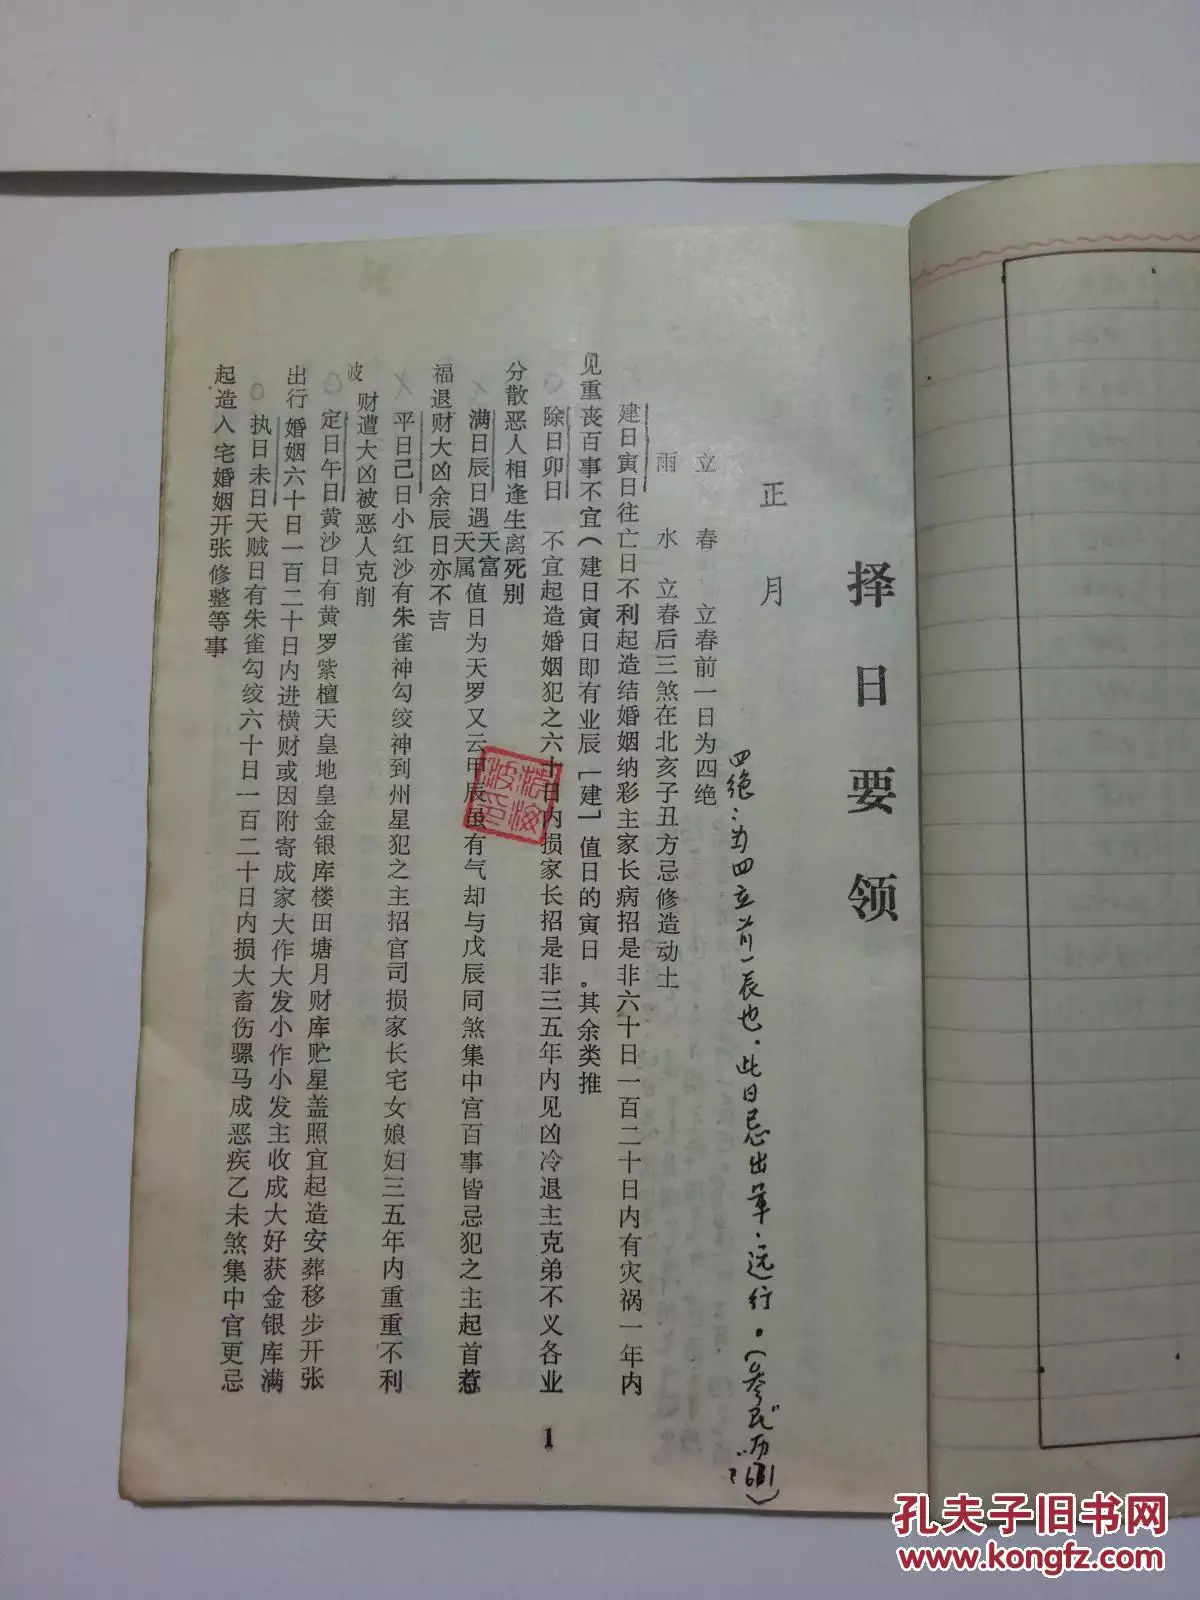 择日要领
正月
四绝:为四立前一辰也.此日忌出军.远行.(参民历
立春 立春前一日为四绝
雨水 立春后三煞在北亥子丑方忌修造动土
建日寅日往亡日不利起造结婚姻纳彩主家长病招是非六十日一百二十日内有灾祸一年内
见重丧百事不宜(建日寅日即有业辰[建]值日的寅日。其余类推
除日卯日 不宜起造婚姻犯之六十日内损家长招是非三五年内见凶冷退主克弟不义各业
分散恶人相逢生离死别
满日辰日遇天富天属值日为天罗又云甲辰虽有气却与戊辰同煞集中宫百事皆忌犯之主起首惹
福退财大凶余辰日亦不吉
平日己日小红沙有朱雀神勾绞神到州星犯之主招官司损家长宅女娘妇三五年内重重不利
破财遭大凶被恶人克削
定日午日黄沙日有黄罗紫檀天皇地皇金银库楼田塘月财库贮星盖照宜起造安葬移步开张
出行婚姻六十日一百二十日内进横财或因附寄成家大作大发小作小发主收成大好获金银库满
执日未日天贼日有朱雀勾绞六十日一百二十日内损大畜伤骡马成恶疾乙未煞集中官更忌
起造入宅婚姻开张修整等事
1
孔夫子旧书网
www.kongfz.com